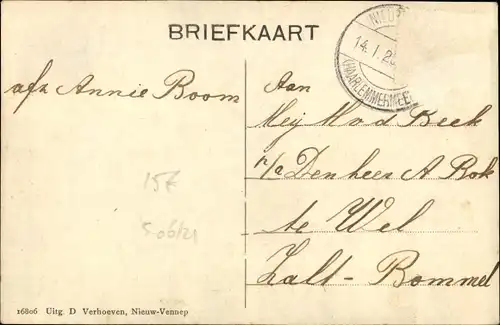 BRIEFKAART
NIEU
14.1.2
(HAARLEMMERMEE
afz Annie Boom
Aan
Mej M v d Beek
p/a Den heer A Bok
te Wel
Zalt-Bommel
157
506/21
16806 Uitg. D Verhoeven, Nieuw-Vennep